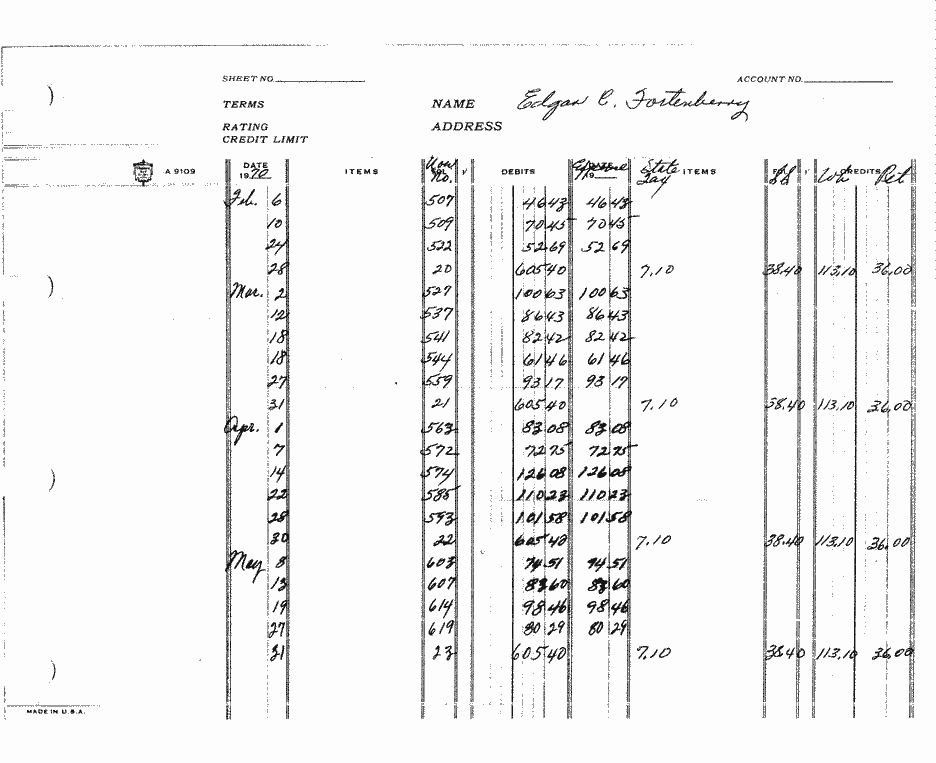 SHEET NO. ACCOUNT NO.
TERMS NAME Edgar C. Fortenberry
RATING ADDRESS
CREDIT LIMIT
A 9109 DATE 1970 ITEMS No. DEBITS Expense State Tax ITEMS CREDITS Ret
Feb. 6 507 46 43 46 43
10 509 70 45 70 45
24 522 52 69 52 69
28 20 605 40 7.10 38.40 113.10 36.00
Mar. 2 527 100 63 100 63
12 537 86 43 86 43
18 541 82 42 82 42
18 544 61 46 61 46
27 559 93 17 93 17
31 21 605 40 7.10 38.40 113.10 36.00
Apr. 1 563 83 08 83 08
7 572 72 75 72 75
14 574 126 08 126 08
22 585 110 23 110 23
28 593 101 58 101 58
30 22 605 40 7.10 38.40 113.10 36.00
May 8 603 74 51 74 51
13 607 83 60 83 60
19 614 98 46 98 46
27 619 80 29 80 29
31 23 605 40 7.10 38.40 113.10 36.00
MADE IN U.S.A.